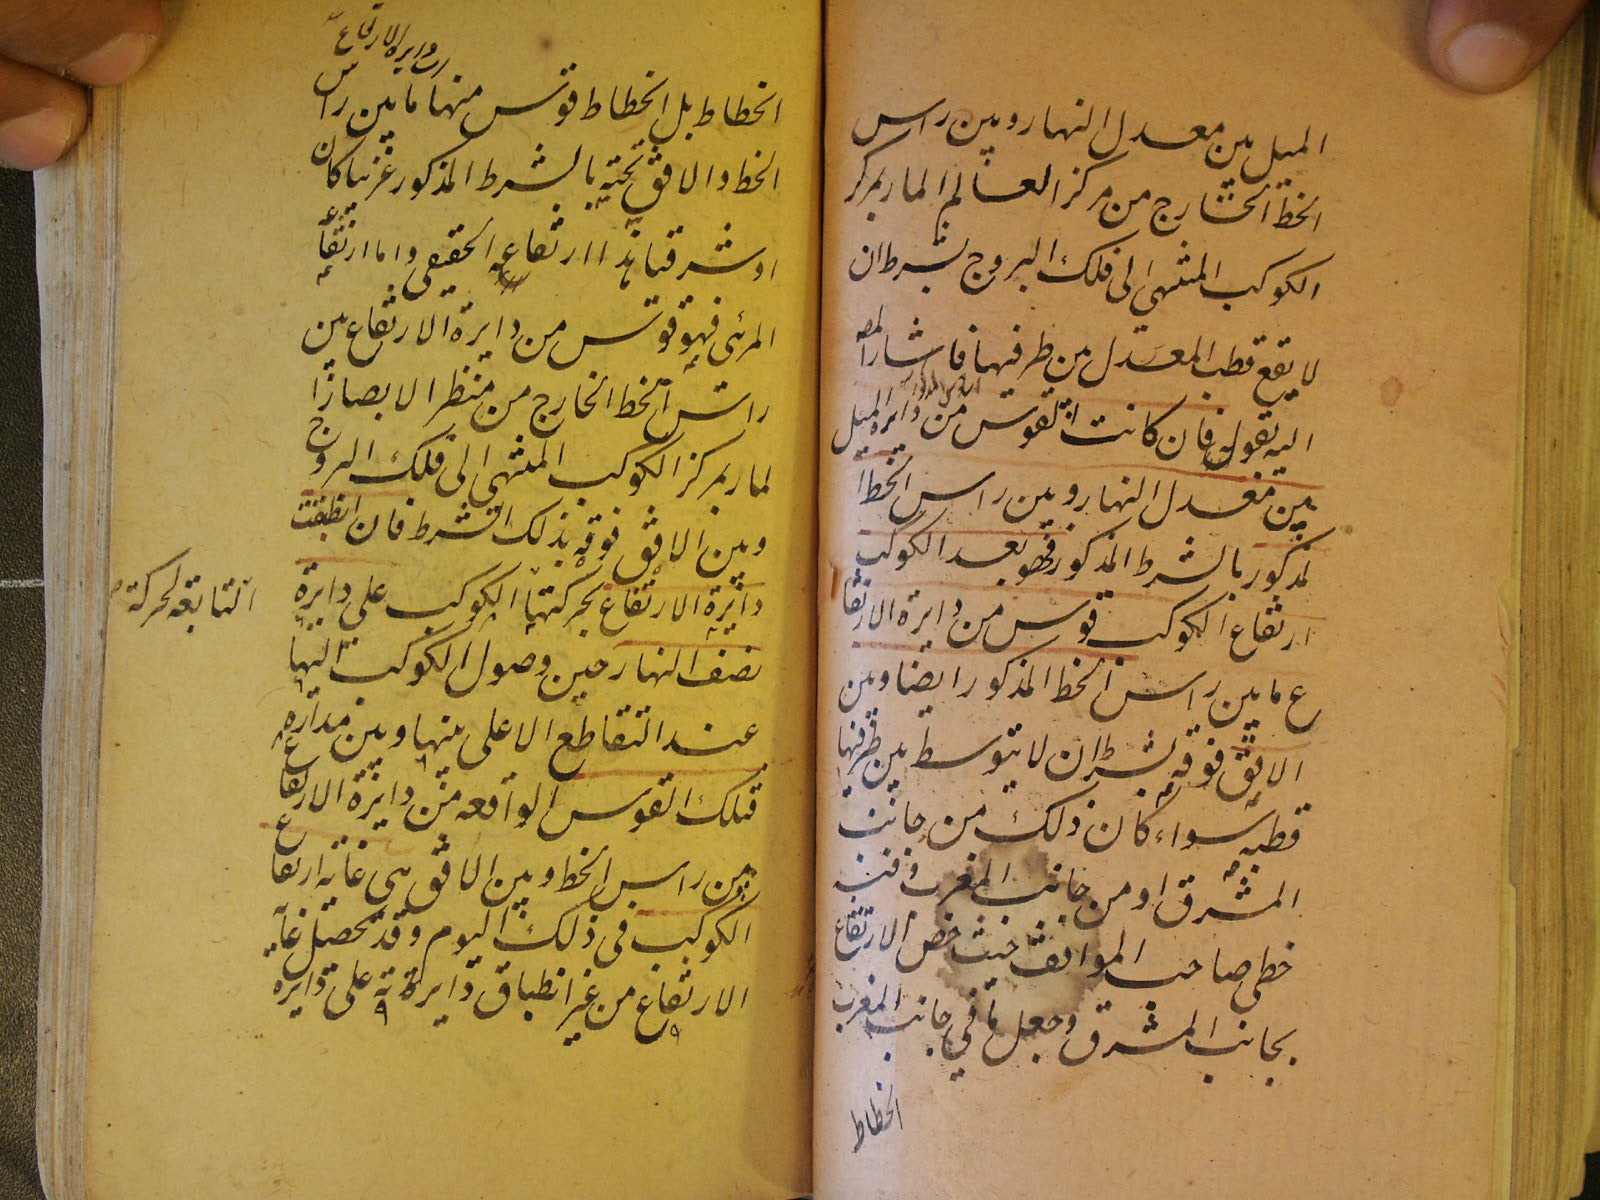 الميل بين معدل النهار وبين راس
الخط الخارج من مركز العالم المار بمركز
الكوكب المنتهى الى فلك البروج بشرط ان
لا يقع قطب المعدل من طرفيها فاشار المص
اليه بقوله فان كانت القوس من دايرة الميل
بين معدل النهار وبين راس الخط ا
لمذكور بالشرط المذكور فهو بعد الكوكب
ارتفاع الكوكب قوس من دايرة الارتفا
ع ما بين راس الخط المذكور ايضا وبين
الافق فوقه بشرط ان لا يتوسط بين طرفيها
قطبه سواء كان ذلك من جانب
المشرق او من جانب المغرب وفيه
خطى صاحب المواقف حيث خص الارتفاع
بجانب المشرق وجعل ما في جانب المغرب
انحطاط
من دايرة الارتفاع
انحطاط بل انحطاط قوس منها ما بين راس
الخط والافق تحته بالشرط المذكور غربيا كان
او شرقيا هذا ارتفاعه الحقيقى واما ارتفاعه
المرئى فهو قوس من دايرة الارتفاع بين
راس الخط الخارج من منظر الابصار ا
لمار بمركز الكوكب المنتهى الى فلك البروج
وبين الافق فوقه بذلك الشرط فان انطبقت
دايرة الارتفاع بحركتها الكوكب على دايرة
التابعة لحركة
نصف النهار حين وصول الكوكب اليها
عند التقاطع الاعلى منها وبين مداره
فتلك القوس الواقعه من دايرة الارتفاع
بين راس الخط وبين الافق هى غاية ارتفاع
الكوكب فى ذلك اليوم وقد تحصل غاية
الارتفاع من غير انطباق دايرته على دايرة